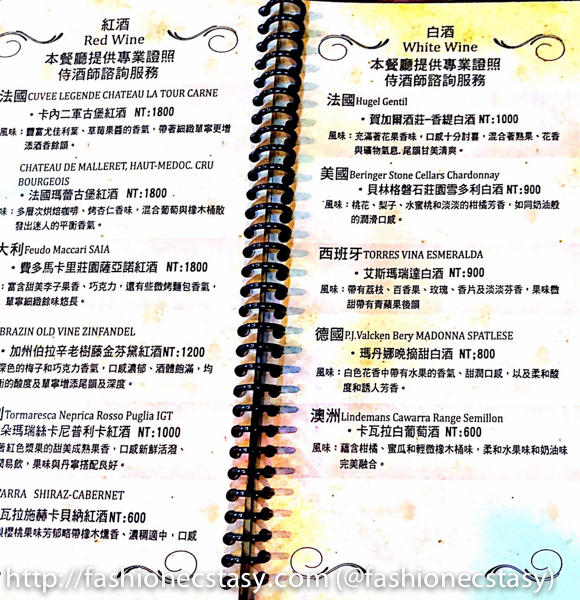 紅酒
Red Wine
本餐廳提供專業證照
侍酒師諮詢服務
法國CUVEE LEGENDE CHATEAU LA TOUR CARNE
・卡內二軍古堡紅酒 NT:1800
風味：豐富尤佳利葉、草莓果醬的香氣，帶著細緻單寧更增
添酒香餘韻。
CHATEAU DE MALLERET, HAUT-MEDOC. CRU
BOURGEOIS
・法國瑪蕾古堡紅酒 NT:1800
味：多層次烘焙咖啡、烤杏仁香味，混合葡萄與橡木桶散
發出迷人的平衡香氣。
大利Feudo Maccari SAIA
・費多馬卡里莊園薩亞諾紅酒 NT:1800
：富含甜美李子果香、巧克力，還有些微烤麵包香氣，
單寧細緻餘味悠長。
BRAZIN OLD VINE ZINFANDEL
・加州伯拉辛老樹藤金芬黛紅酒NT:1200
深色的梅子和巧克力香氣，口感濃郁、酒體飽滿，均
衡的酸度及單寧增添尾韻及深度。
利Tormaresca Neprica Rosso Puglia IGT
朵瑪瑞絲卡尼普利卡紅酒 NT:1000
著紅色漿果的甜美成熟果香，口感新鮮活潑、
易飲，果味與丹寧搭配良好。
ARRA SHIRAZ-CABERNET
瓦拉施赫卡貝納紅酒NT:600
櫻桃果味芳郁略帶橡木燻香、濃稠適中，口感
白酒
White Wine
本餐廳提供專業證照
侍酒師諮詢服務
法國Hugel Gentil
・賀加爾酒莊–香緹白酒NT:1000
風味：充滿著花果香味，口感十分討喜，混合著熟果、花香
與礦物氣息.尾韻甘美清爽。
美國Beringer Stone Cellars Chardonnay
・貝林格磐石莊園雪多利白酒NT:900
風味：桃花、梨子、水蜜桃和淡淡的柑橘芳香，如同奶油般
的潤滑口感。
西班牙TORRES VINA ESMERALDA
・艾斯瑪瑞達白酒 NT:900
風味：帶有荔枝、百香果、玫瑰、香片及淡淡芬香，果味微
甜帶有青蘋果後韻
德國P.J.Valcken Bery MADONNA SPATLESE
・瑪丹娜晚摘甜白酒 NT;800
風味：白色花香中帶有水果的香氣、甜潤口感，以及柔和酸
度和誘人芳香。
澳洲Lindemans Cawarra Range Semillon
・卡瓦拉白葡萄酒 NT:600
風味：蘊含柑橘、蜜瓜和輕微橡木桶味，柔和水果味和奶油味
完美融合。
http://fashionecstasy.com (@fashionecstasy)